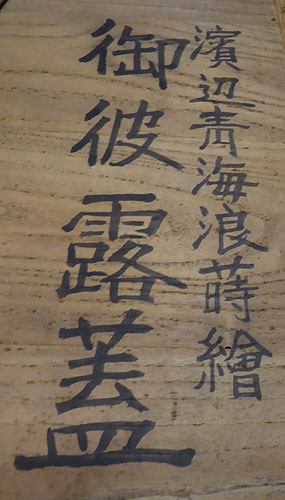 濱辺青海浪蒔繪
御彼露蓋